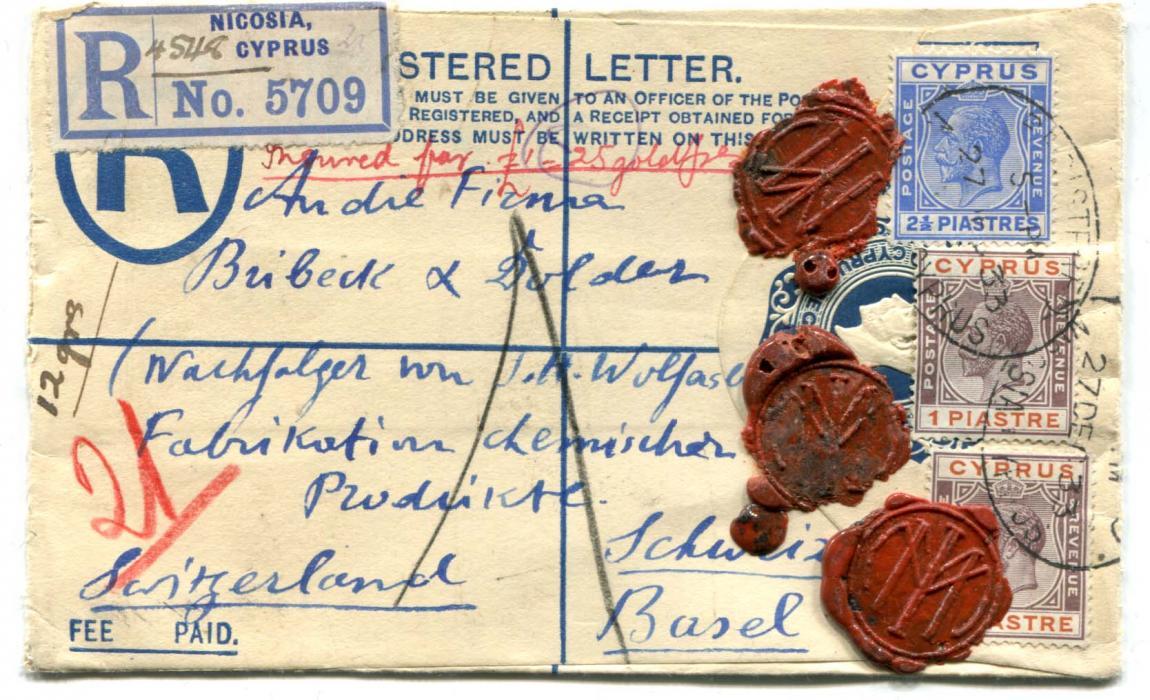 NICOSIA,
CYPRUS
R
4548
No. 5709
STERED LETTER.
MUST BE GIVEN TO AN OFFICER OF THE PO
REGISTERED, AND A RECEIPT OBTAINED FO
DDRESS MUST BE WRITTEN ON THIS
Insured for £1 = 25 goldfrs
R
An die Firma
Brübeck & Dolder
(Nachfolger von J. H. Wolfas
Fabrikation chemischer
Produkte.
Schweiz
Switzerland
Basel
FEE PAID.
12 grs
21
CYPRUS
POSTAGE
REVENUE
2½ PIASTRES
CYPRUS
POSTAGE
REVENUE
1 PIASTRE
CYPRUS
REVENUE
IASTRE
CYPRU
5-PM
27
33
27 DE
33